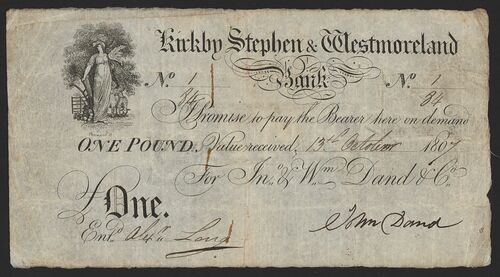 Kirkby Stephen & Westmoreland
Bank
No. 1 No. 1
34 34
I Promise to pay the Bearer here on demand
ONE POUND, Value received, 13th October 1807
For Jno. & Wm. Dand & Co.
£One.
Entd. Alexr.
John Dand